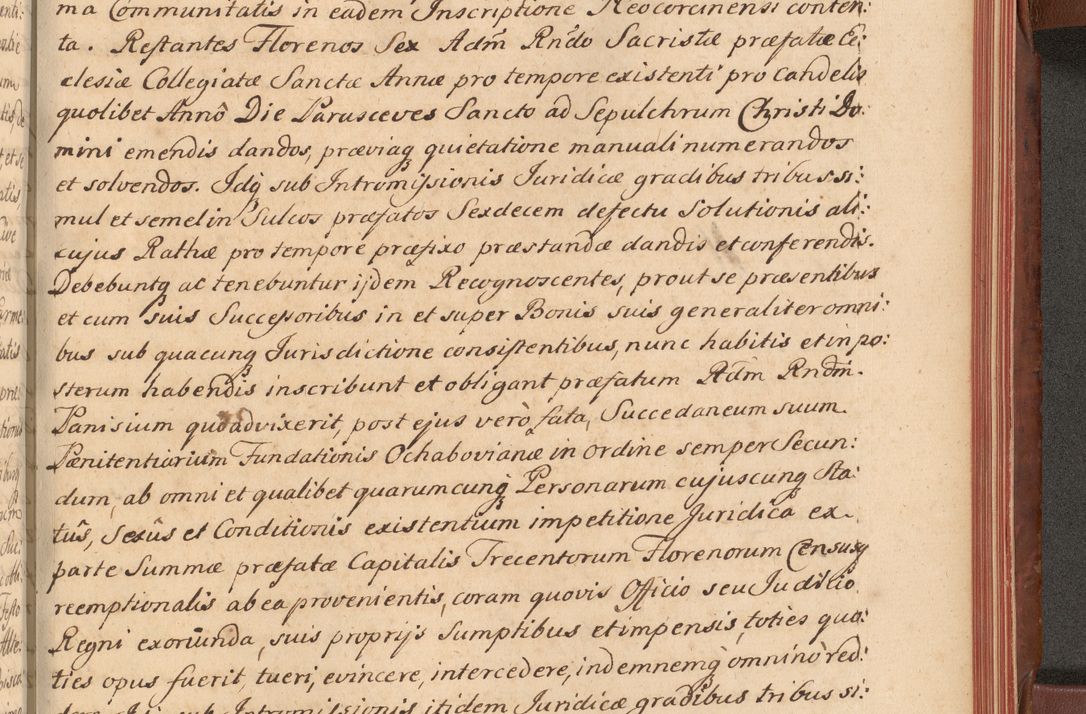 ma Communitatis in eadem Inscriptione Neocorcinensi conten:
ta. Restantes Florenos Sex Adm̃ Rńdo Sacristæ præfatæ Ec:
clesiæ Collegiatæ Sanctæ Annæ pro tempore existenti pro candelis
quolibet Annô Die Parasceves Sancto ad Sepulchrum Christi Do:
mini emendis dandos, præviaq quietatione manuali numerandos
et solvendos. Idq sub Intromissionis Juridicæ gradibus tribus si:
mul et semel in Sulcos præfatos Sexdecem defectu Solutionis ali:
cujus Rathæ pro tempore præfixo præstandæ dandis et conferendis.
Debebuntq ac tenebuntur ijdem Recognoscentes, prout se præsentibus
et cum suis Successoribus in et super Bonis suis generaliter omni:
bus sub quacunq Jurisdictione consistentibus, nunc habitis et in po:
sterum habendis inscribunt et obligant præfatum Adm Rndm̃.
Panisium quoadvixerit, post ejus verò fata, Succedaneum suum
Pænitentiarium Fundationis Ochabovianæ in ordine semper Secun:
dum, ab omni et qualibet quarumcunq Personarum cujuscunq Sta:
tûs, Sexûs et Conditionis existentium impetitione Juridica ex
parte Summæ præfatæ Capitalis Trecentorum Florenorum Censusq
reemptionalis ab ea provenientis, coram quovis Officio seu Judicio
Regni exoriunda, suis proprijs Sumptibus et impensis, toties quo:
ties opus fuerit, tueri, evincere, intercedere, indemnemq omninò red:
dere. Idq sub Intromissionis itidem Juridicæ gradibus tribus si: